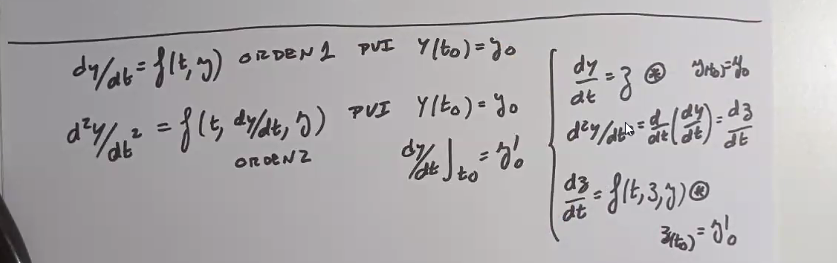 dy/dt = f(t, y) ORDEN 1 PVI Y(t0) = y0
d²y/dt² = f(t, dy/dt, y) PVI Y(t0) = y0
ORDEN 2 dy/dt]t0 = y'0
dy/dt = z ⊛ y(t0) = y0
d²y/dt² = d/dt (dy/dt) = dz/dt
dz/dt = f(t, z, y) ⊛
z(t0) = y'0